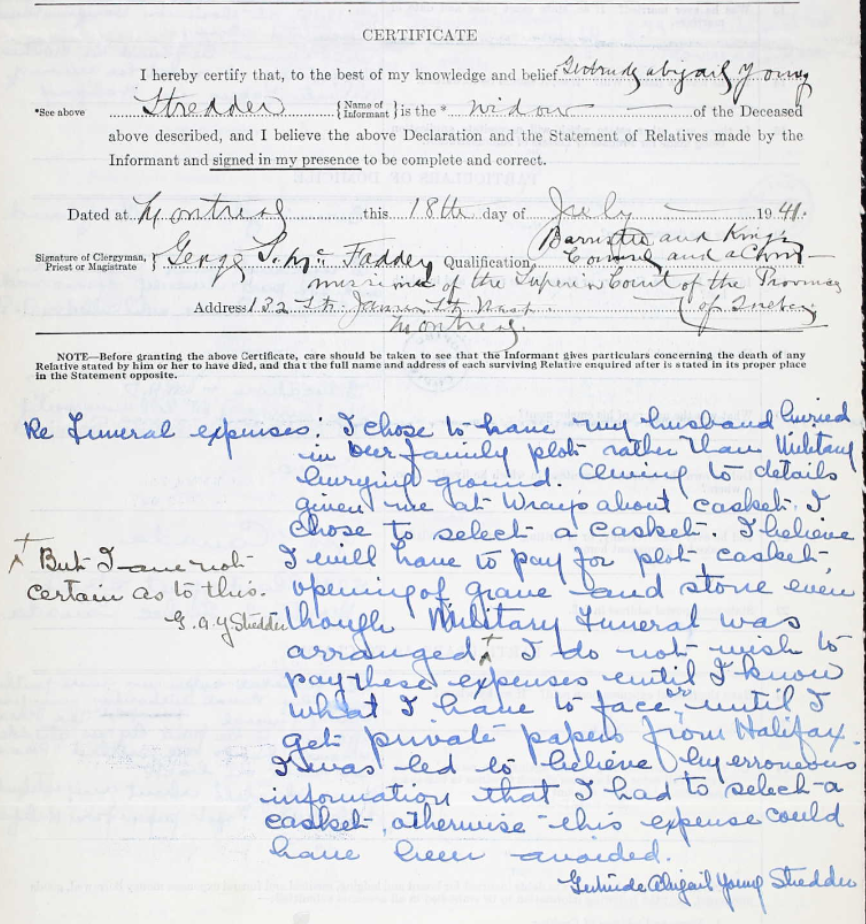 CERTIFICATE
I hereby certify that, to the best of my knowledge and belief Gertrude Abigail Young
*See above Stredder {Name of Informant} is the * widow of the Deceased
above described, and I believe the above Declaration and the Statement of Relatives made by the
Informant and signed in my presence to be complete and correct.
Dated at Montreal this 18th day of July 1941.
Signature of Clergyman, Priest or Magistrate } George S. McFadden Qualification Barrister and King's
Counsel and a Com-
missioner of the Superior Court of the Province
Address 132 St. James St. West. of Quebec
Montreal.
NOTE—Before granting the above Certificate, care should be taken to see that the Informant gives particulars concerning the death of any
Relative stated by him or her to have died, and that the full name and address of each surviving Relative enquired after is stated in its proper place
in the Statement opposite.
Re Funeral expenses: I chose to have my husband buried
in our family plot rather than Military
burying ground. Owing to details
given me at Wray's about casket, I
chose to select a casket. I believe
I will have to pay for plot, casket,
opening of grave and stone even
though Military Funeral was
arranged. + I do not wish to
pay these expenses until I know
what I have to face, or until I
get private papers from Halifax.
I was led to believe by erroneous
information that I had to select a
casket, otherwise this expense could
have been avoided.
Gertrude Abigail Young Stredder
+ But I am not
certain as to this.
G. A. Y. Stredder